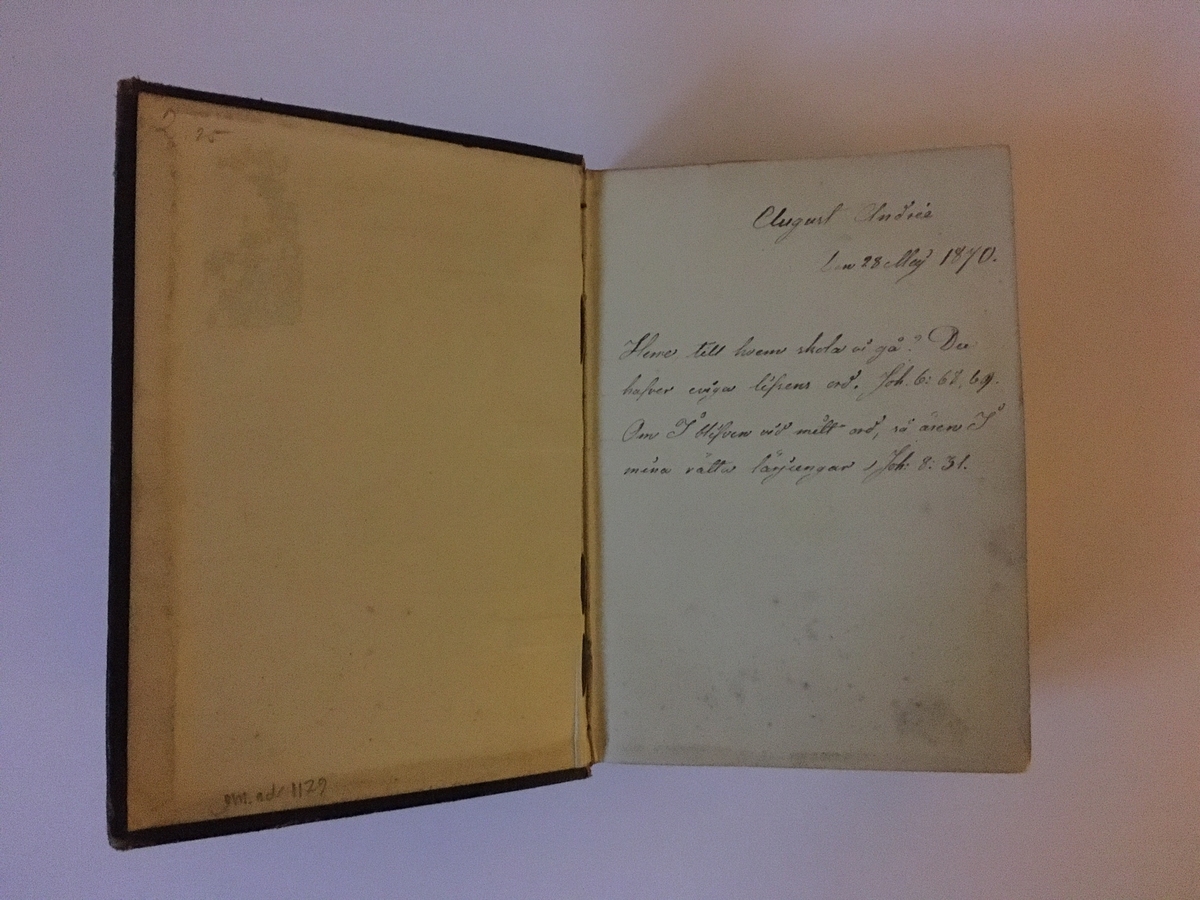 2 25
August Andrée
den 28 Maÿ 1870.
Herre till hvem skola vi gå? Du
hafver eviga lifsens ord. Joh. 6: 68, 69.
Om I blifven vid mitt ord, så ären I
mina rätta lärjungar, Joh: 8: 31.
1129